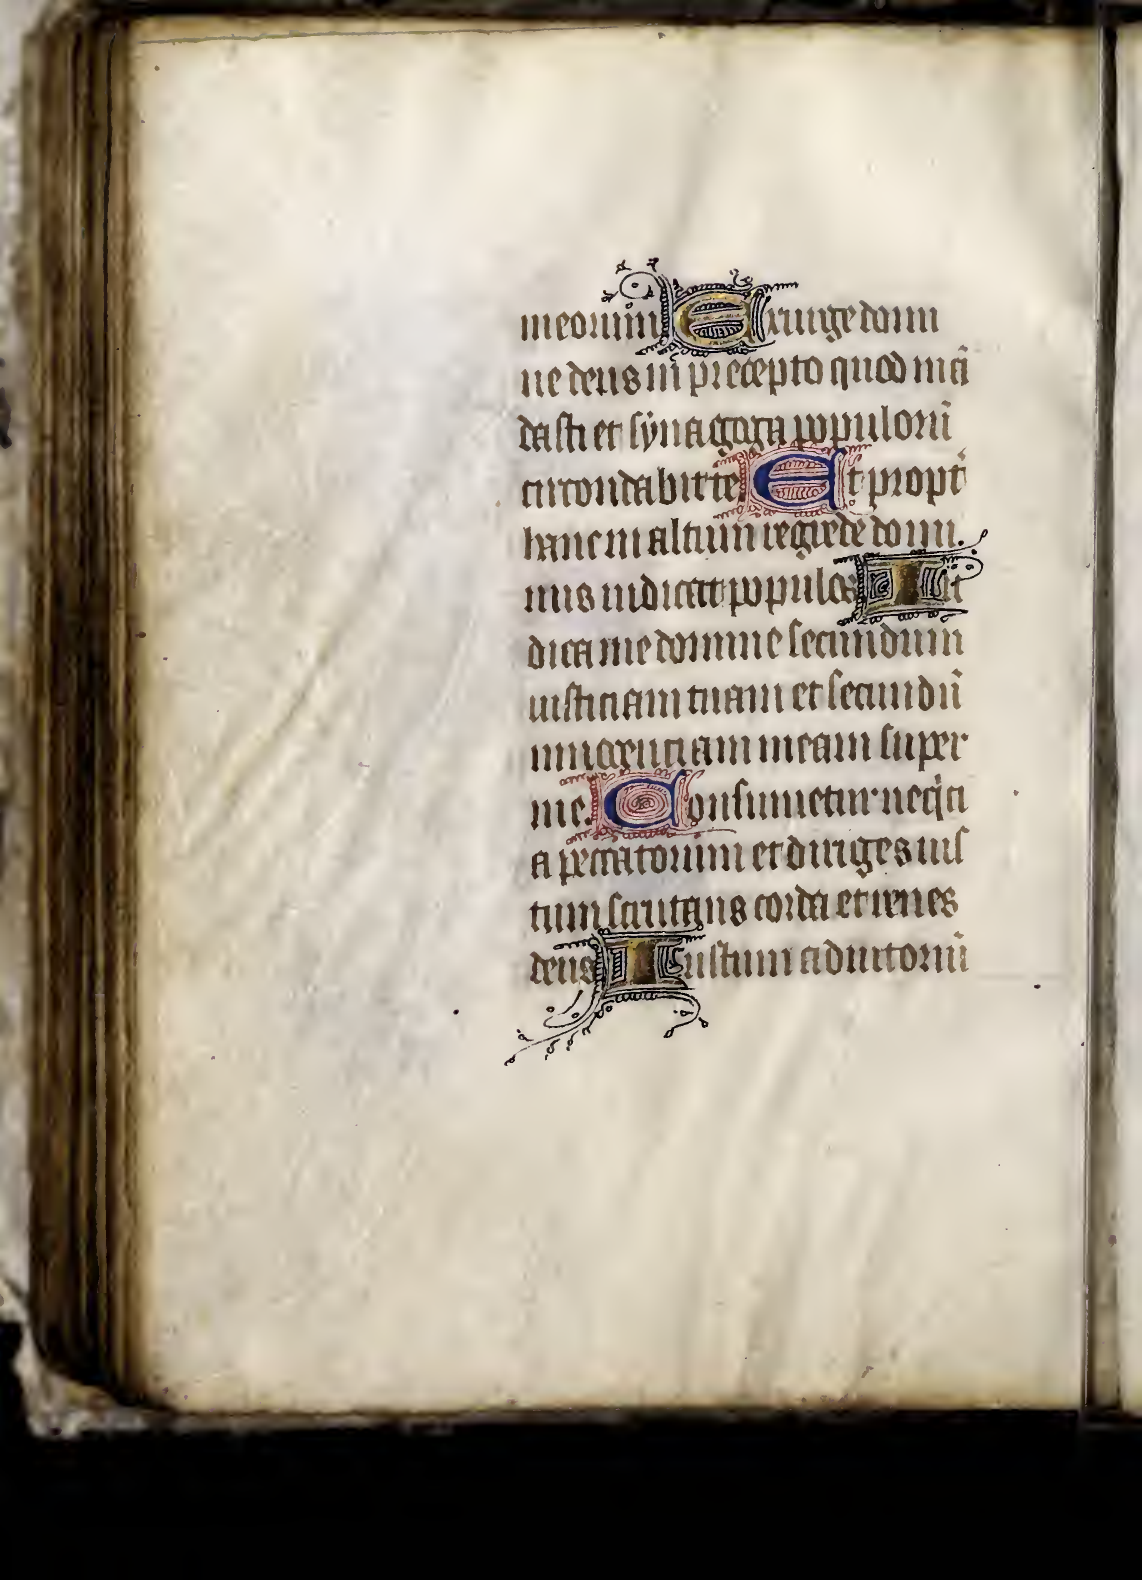 meorum Exurge domi
ne deus in precepto quod mā
dasti et sÿnagoga populorū
circondabit te. Et propt̄
hanc in altum regrede domi.
nus iudicat populos Iu
dica me domine secundum
iusticiam tuam et secundū
innocenciam meam super
me. Consumetur neq̄ci
a peccatorum et diriges ius
tum scrutans corda et renes
deus Iustum adiutoriū